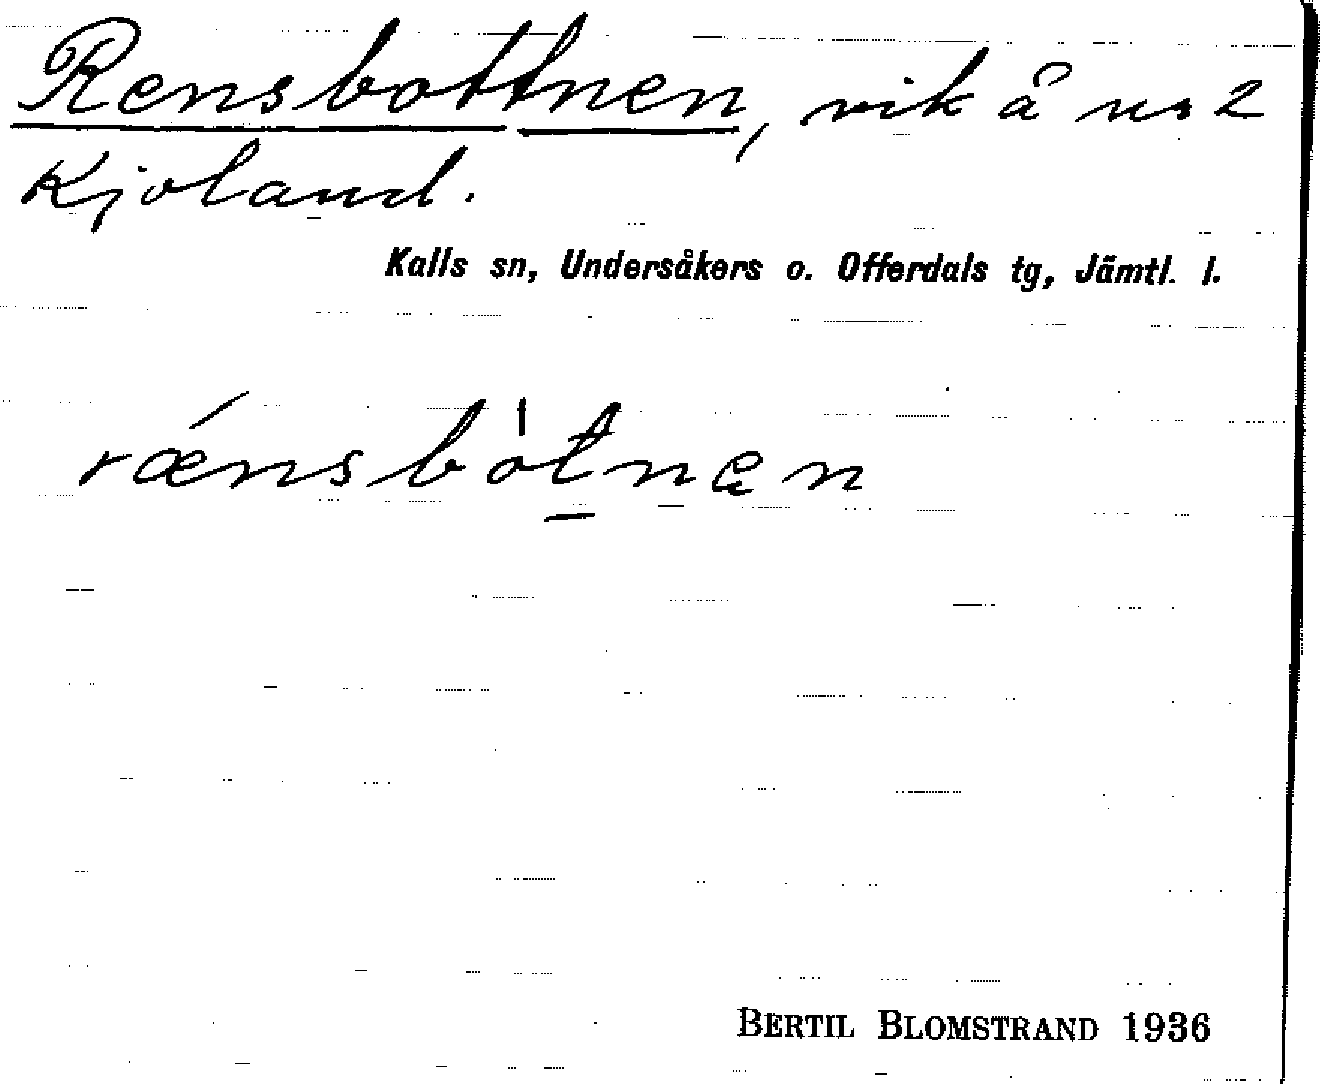 Rensbottnen, vik å ns 2
Kjoland.
Kalls sn, Undersåkers o. Offerdals tg, Jämtl. l.
rǽnsbòtnen
BERTIL BLOMSTRAND 1936